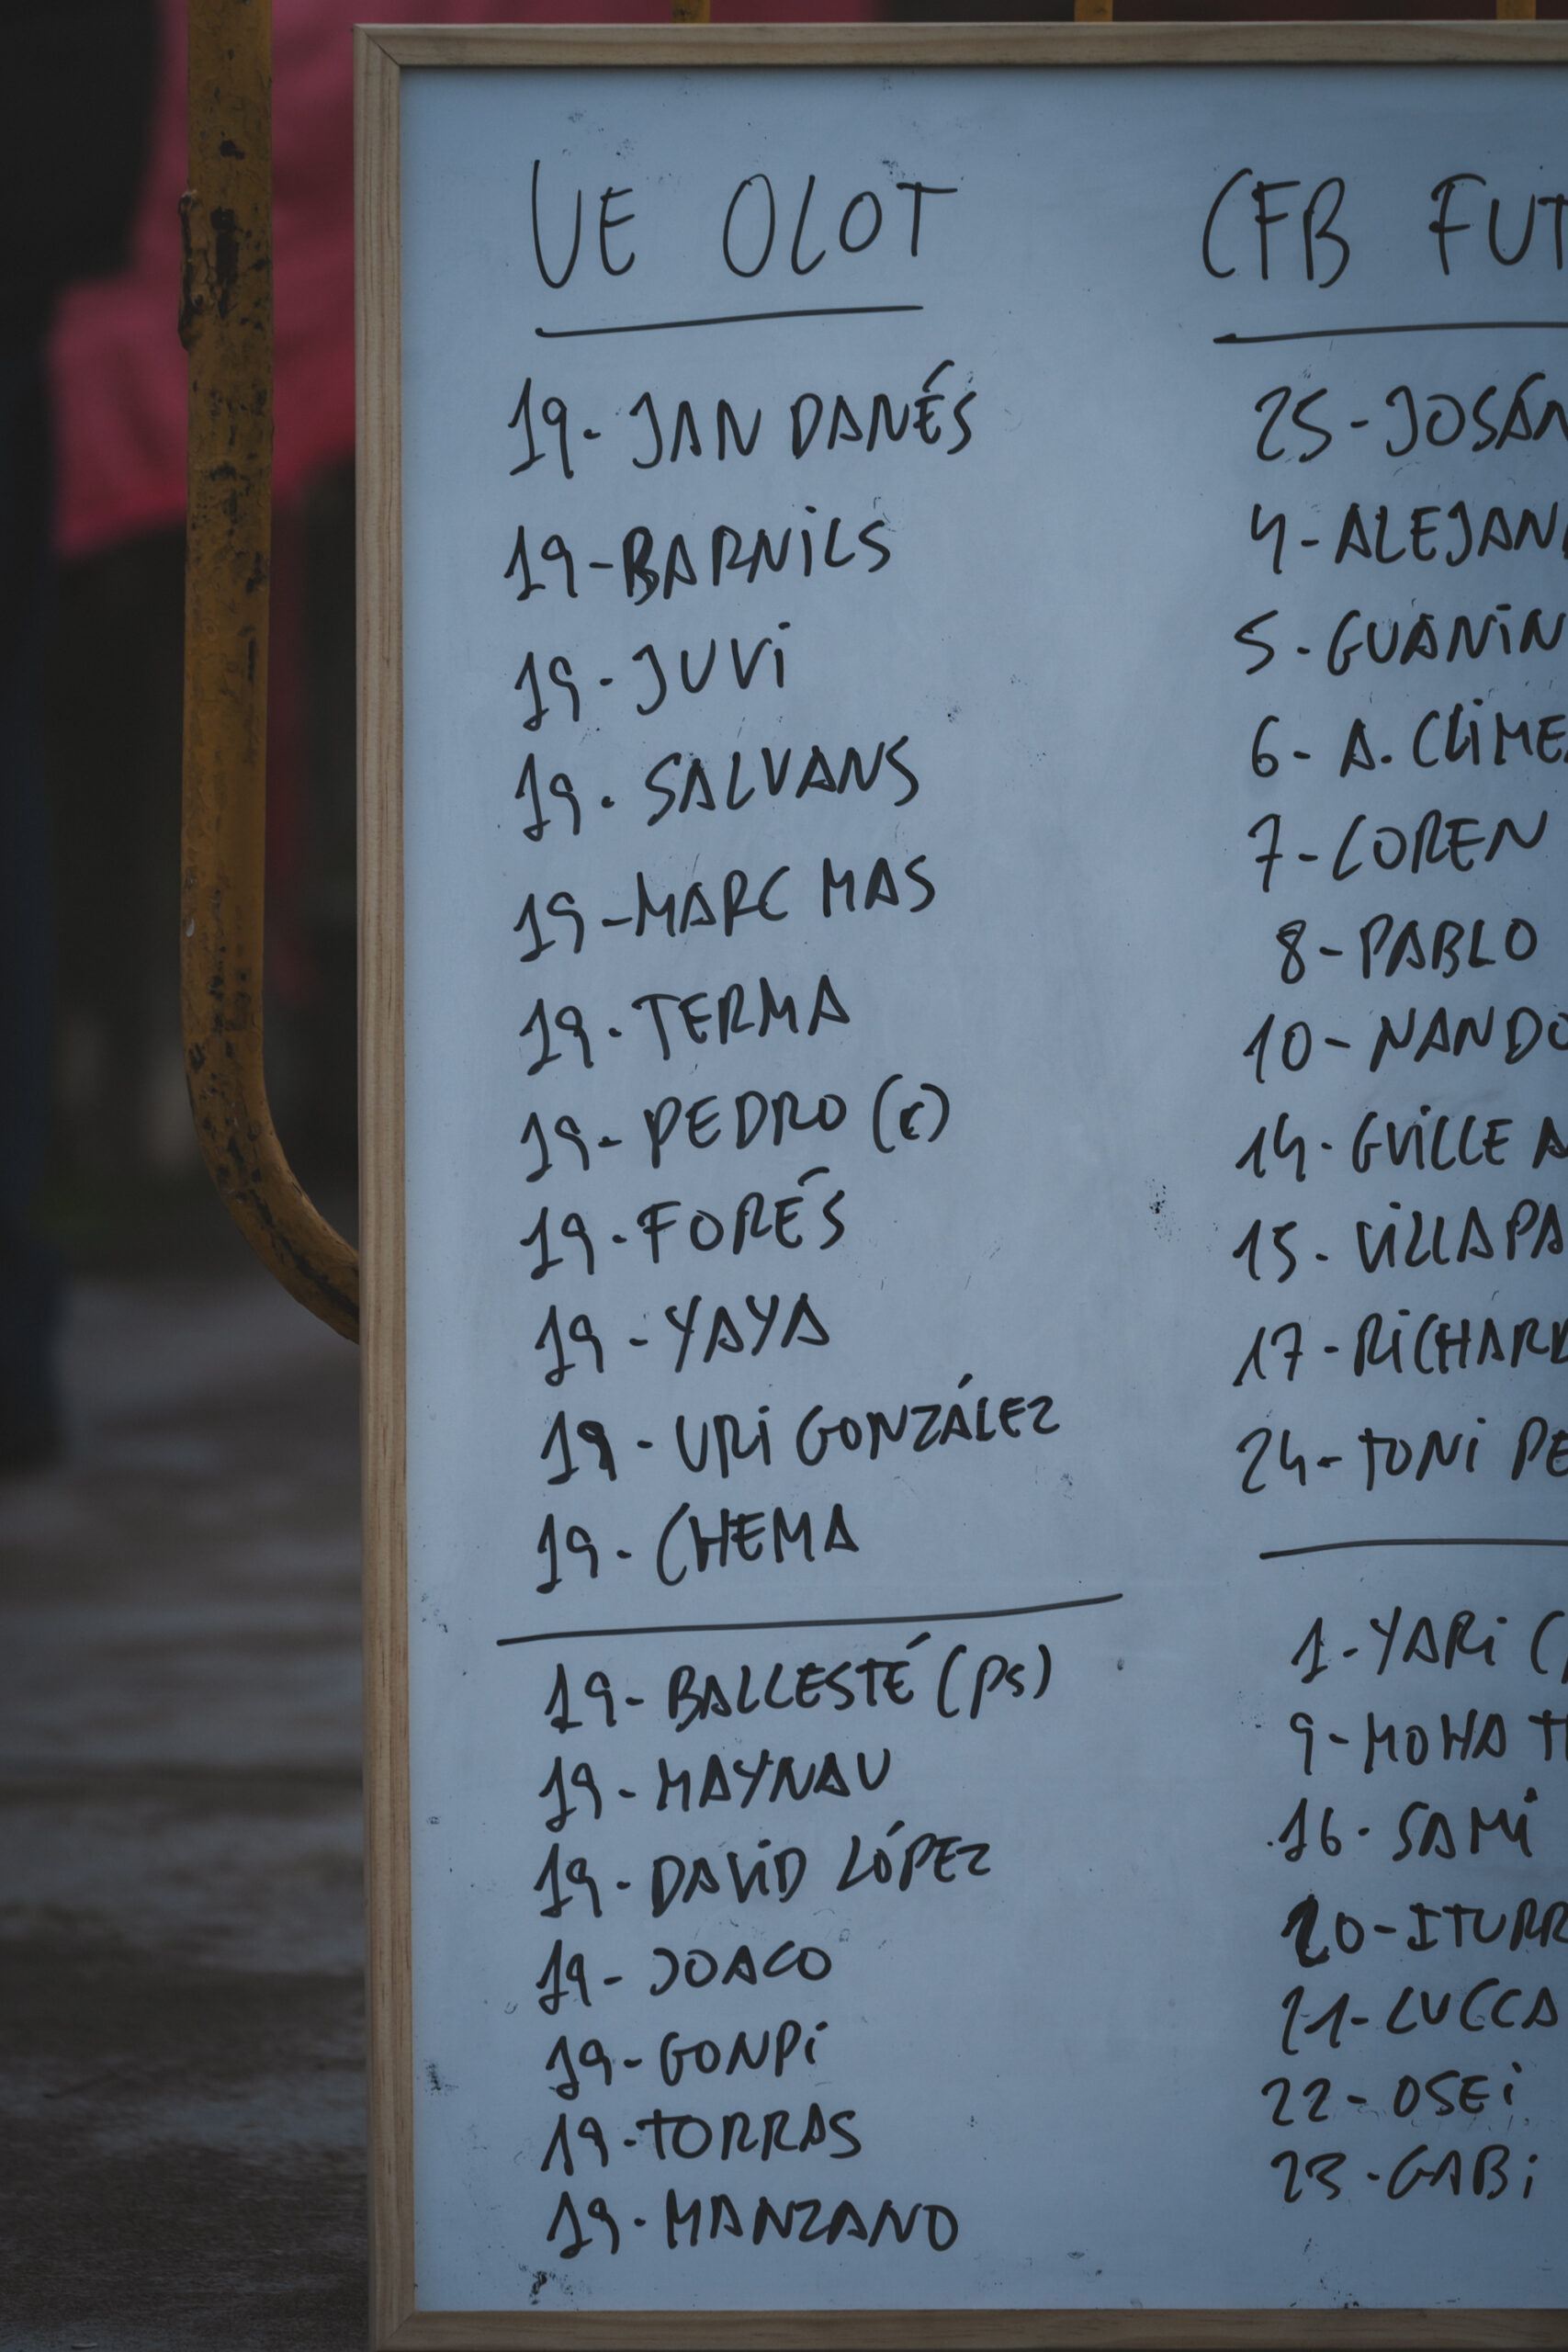 UE OLOT
19- JAN DANÉS
19-BARNiLS
19-JUVi
19. SALVANS
19-MARC MAS
19-TERMA
19-PEDRO (c)
19-FORÉS
19-YAYA
19-URi GONZÁLEZ
19-CHEMA
19-BALLESTÉ (PS)
19-MAYNAU
19-DAViD LÓPEZ
19-JOACO
19-GONPi
19-TORRAS
19-MANZANO
CFB FUT
25-JOSÁN
4-ALEJAN
5-GUANiN
6- A. CLiME
7-LOREN
8-PABLO
10-NANDO
14-GUiLLE A
15-ViLLAPA
17-RiCHARD
24-TONi PE
1-YARi (
9-MOHA T
16-SAMi
20-ITURR
21-LUCCA
22-OSEi
23-GABi